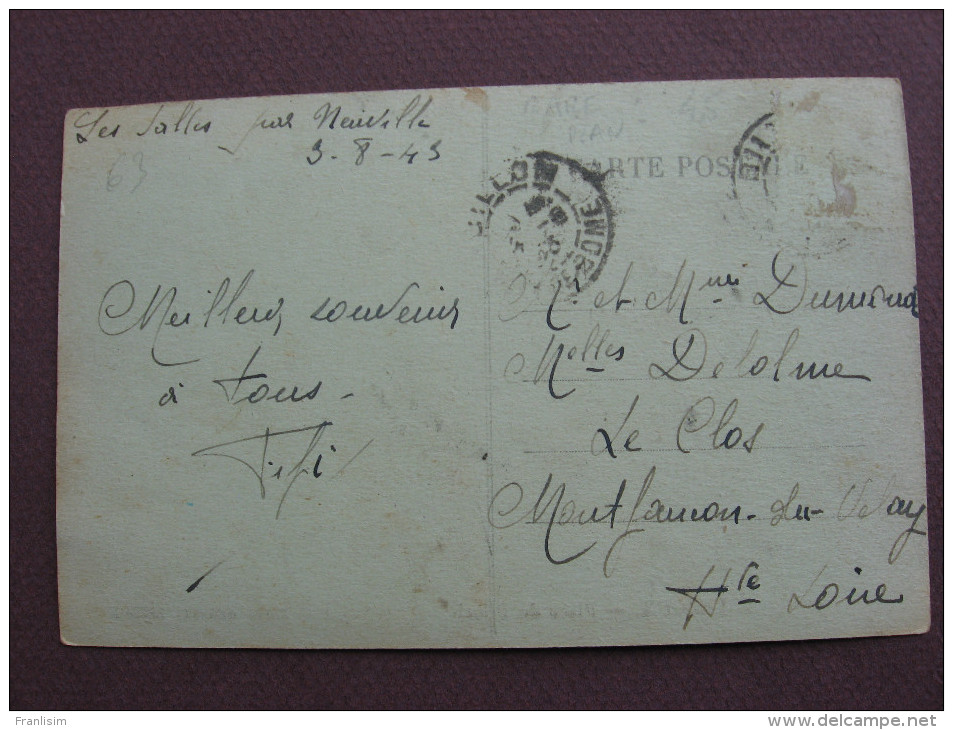 Les Salles par Neuville
3-8-43
63
RARE
CARTE POSTALE
Meilleurs souvenirs
à tous -
Fifi
M. et Mme Dumond
Melles Delolme
Le Clos
Montfaucon-du-Velay
Hte Loire
Franlisim
www.delcampe.net